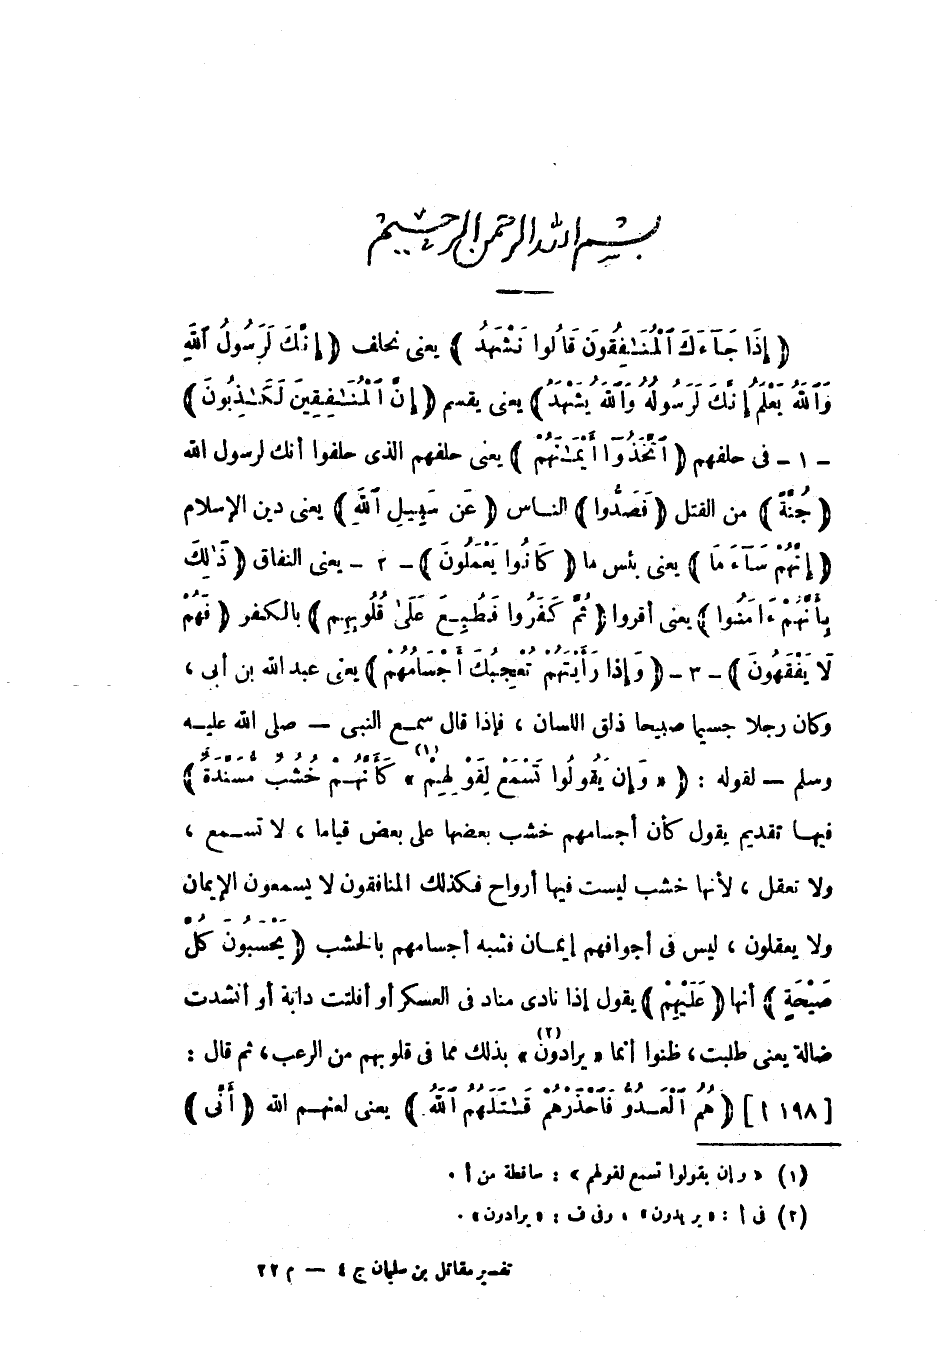 بسم الله الرحمن الرحيم
﴿ إِذَا جَآءَكَ ٱلْمُنَـٰفِقُونَ قَالُوا نَشْهَدُ ﴾ يعنى نحلف ﴿ إِنَّكَ لَرَسُولُ ٱللَّهِ
وَٱللَّهُ يَعْلَمُ إِنَّكَ لَرَسُولُهُ وَٱللَّهُ يَشْهَدُ ﴾ يعنى يقسم ﴿ إِنَّ ٱلْمُنَـٰفِقِينَ لَكَـٰذِبُونَ ﴾
- ١ - فى حلفهم ﴿ ٱتَّخَذُوٓا أَيْمَـٰنَهُمْ ﴾ يعنى حلفهم الذى حلفوا أنك لرسول الله
﴿ جُنَّةً ﴾ من القتل ﴿ فَصَدُّوا ﴾ الناس ﴿ عَن سَبِيلِ ٱللَّهِ ﴾ يعنى دين الإسلام
﴿ إِنَّهُمْ سَآءَ مَا ﴾ يعنى بئس ما ﴿ كَانُوا يَعْمَلُونَ ﴾ - ٢ - يعنى النفاق ﴿ ذَٰلِكَ
بِأَنَّهُمْ ءَامَنُوا ﴾ يعنى أقروا ﴿ ثُمَّ كَفَرُوا فَطُبِعَ عَلَىٰ قُلُوبِهِم ﴾ بالكفر ﴿ فَهُمْ
لَا يَفْقَهُونَ ﴾ - ٣ - ﴿ وَإِذَا رَأَيْتَهُمْ تُعْجِبُكَ أَجْسَامُهُمْ ﴾ يعنى عبد الله بن أبى ،
وكان رجلا جسيما صبيحا ذلق اللسان ، فإذا قال سمع النبى — صلى الله عليه
وسلم — لقوله : ﴿ « وَإِن يَقُولُوا تَسْمَعْ لِقَوْلِهِمْ » (١) كَأَنَّهُمْ خُشُبٌ مُّسَنَّدَةٌ ﴾
فيها تقديم يقول كأن أجسامهم خشب بعضها على بعض قياما ، لا تسمع ،
ولا تعقل ، لأنها خشب ليست فيها أرواح فكذلك المنافقون لا يسمعون الإيمان
ولا يعقلون ، ليس فى أجوافهم إيمان فشبه أجسامهم بالخشب ﴿ يَحْسَبُونَ كُلَّ
صَيْحَةٍ ﴾ أنها ﴿ عَلَيْهِمْ ﴾ يقول إذا نادى مناد فى العسكر أو أفلتت دابة أو أنشدت
ضالة يعنى طلبت ، ظنوا أنما « يرادون » (٢) بذلك مما فى قلوبهم من الرعب ، ثم قال :
[ ١٩٨ أ ] ﴿ هُمُ ٱلْعَدُوُّ فَٱحْذَرْهُمْ قَـٰتَلَهُمُ ٱللَّهُ ﴾ يعنى لعنهم الله ﴿ أَنَّىٰ ﴾
(١) « وإن يقولوا تسمع لقولهم » : ساقطة من أ .
(٢) فى أ : « يريدون » ، وفى ف : « يرادون » .
تفسير مقاتل بن سليمان ج ٤ — م ٢٢